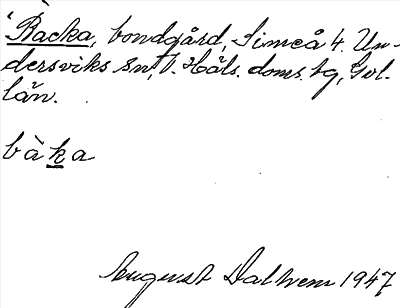 'Backa, bondgård, Simeå 4. Un-
dersviks sn, V. Häls. doms. tg, Gvl.
län.
bàka
August Dalhem 1947